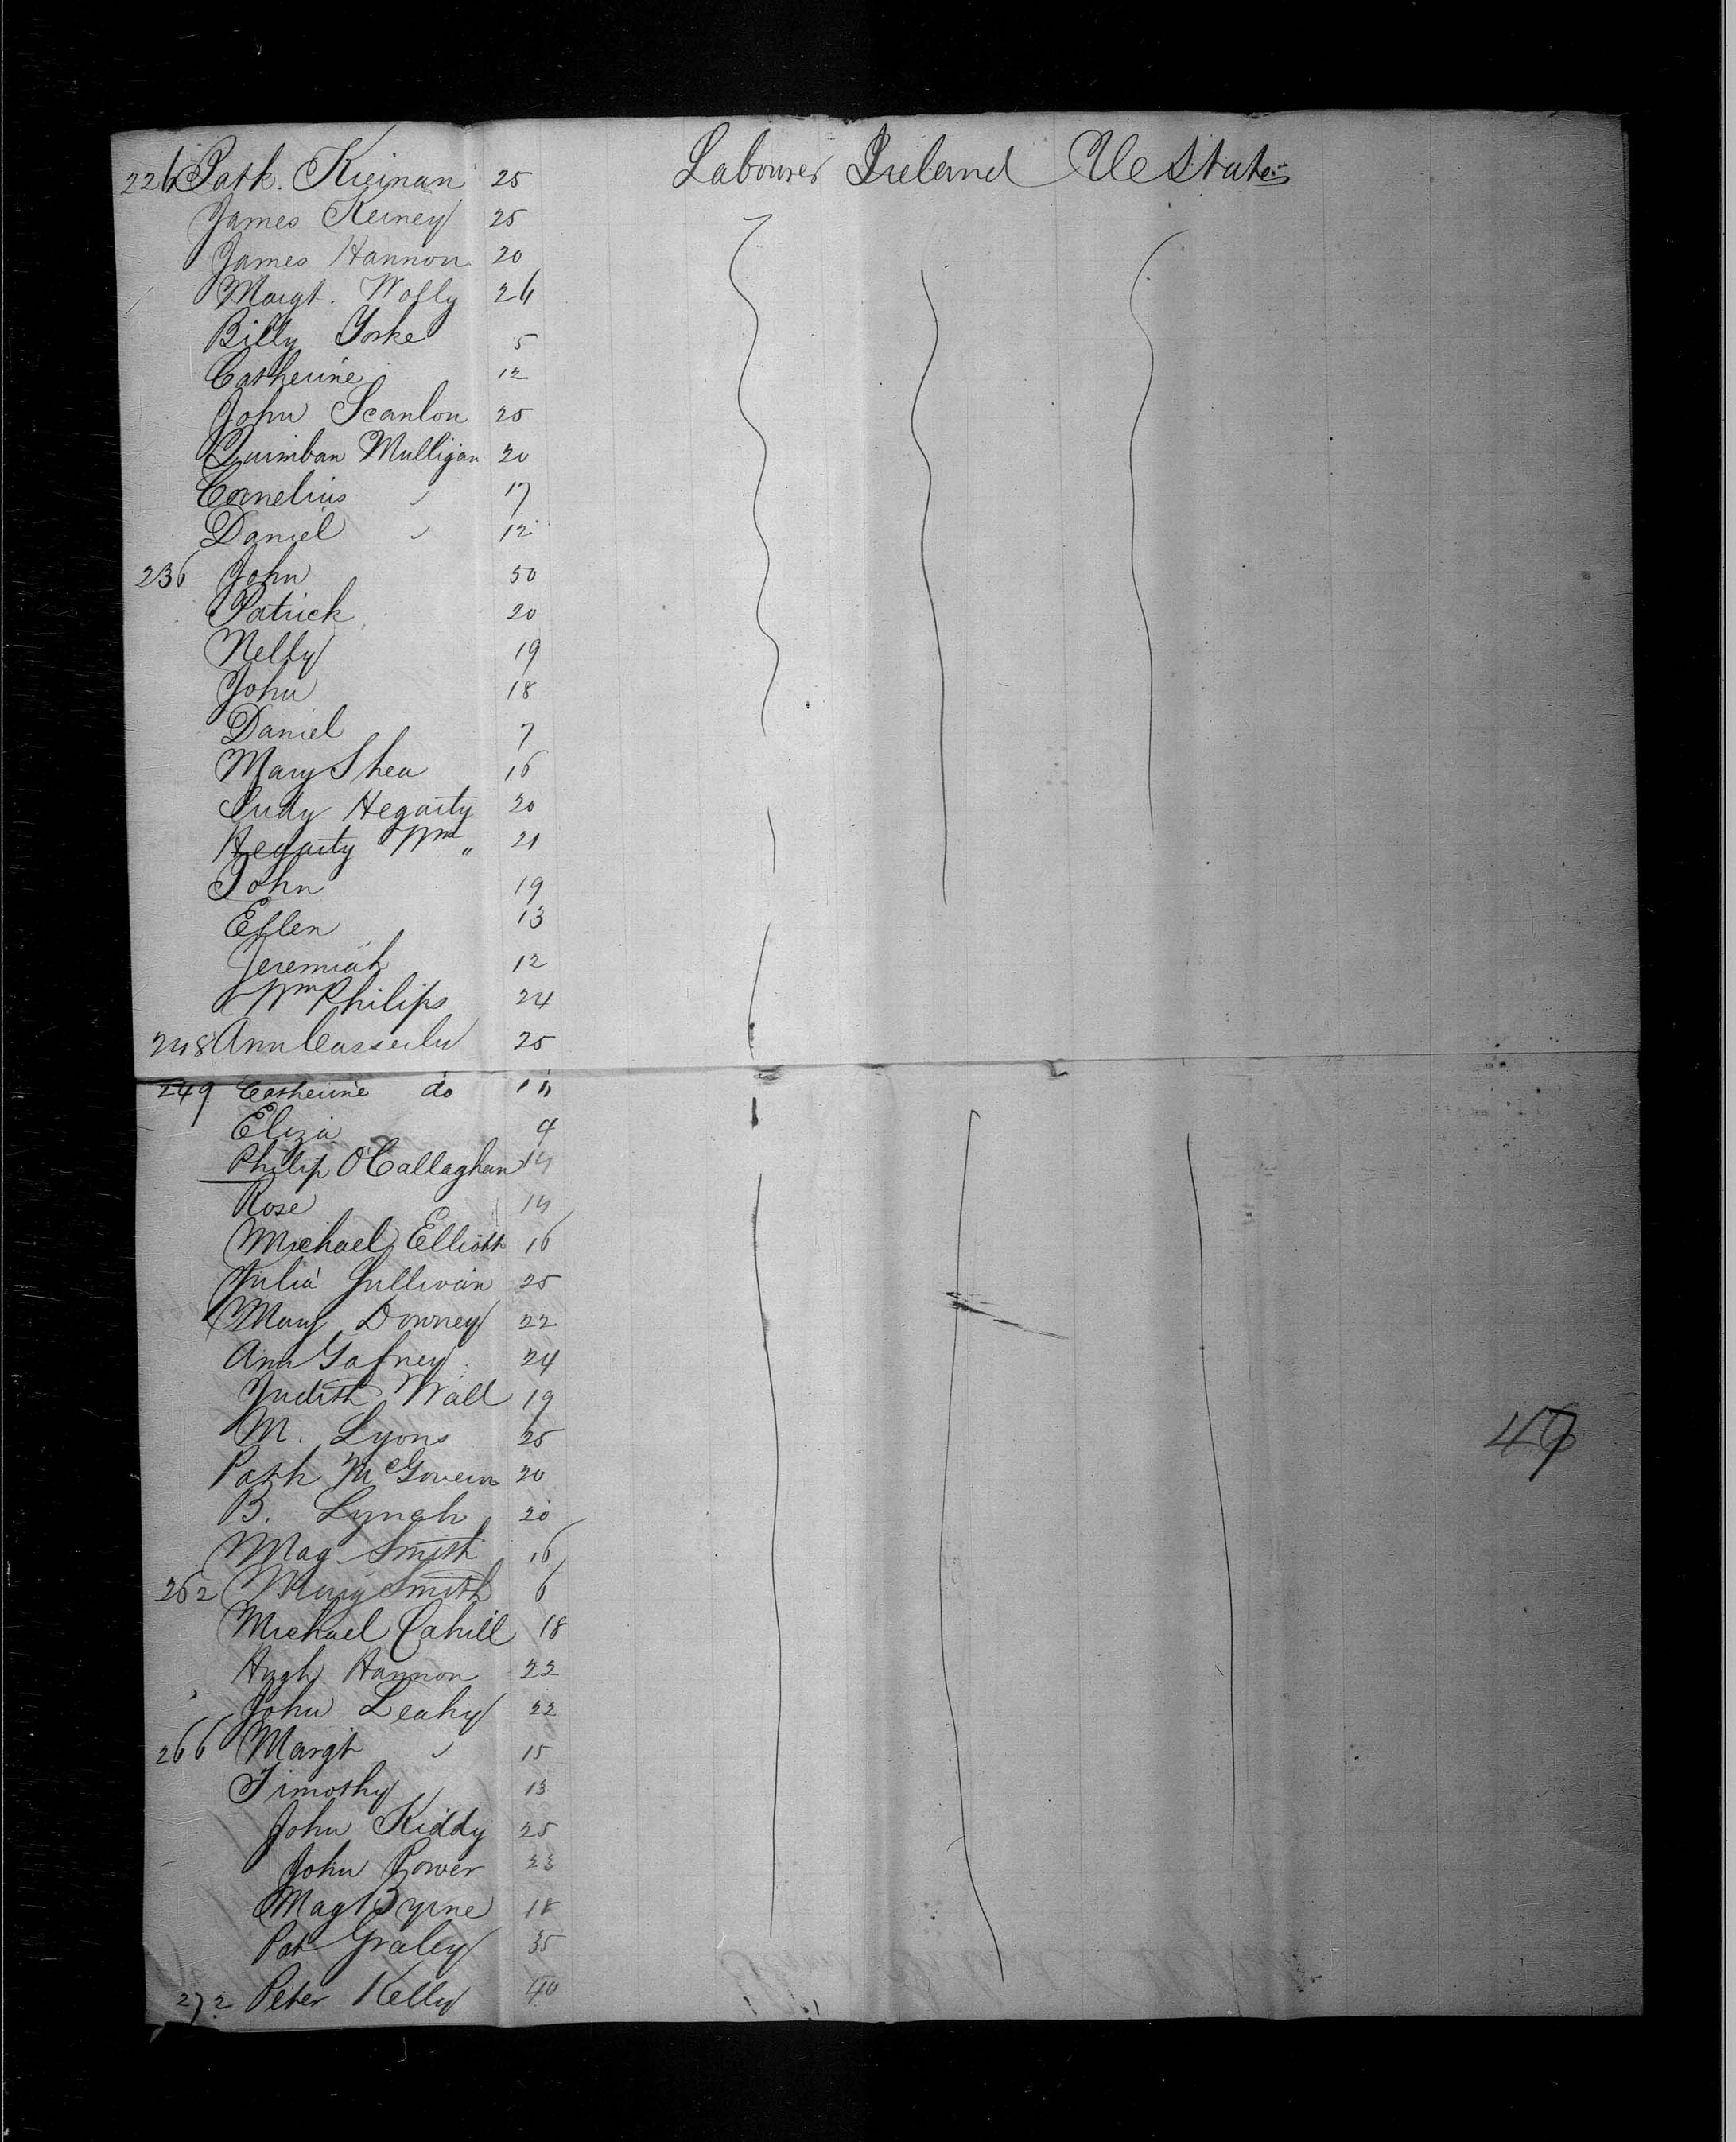 226 Patk. Kiernan 25 Labourer Ireland Ue States
James Kerney 25
James Hannon 20
Margt. Wolly 26
Billy Yorke 5
Catherine 12
John Scanlon 25
Quimban Mulligan 20
Cornelius " 17
Daniel " 12
236 John 50
Patrick 20
Nelly 19
John 18
Daniel 7
Mary Shea 16
Judy Hegarty 20
Hegarty Wm " 21
John 19
Ellen 13
Jeremiah 12
Wm Philips 24
248 Ann 25
249 Catherine do
Eliza 4
Philip O'Callaghan 14
Rose 14
Michael Elliott 16
Julia Sullivan 25
Mary Downey 22
Ann Gafney 24
Judith Wall 19
M. Lyons 25
Patk McGovern 20
B. Lynch 20
Mag Smith 16
262 Mary Smith 6
Michael Cahill 18
Hugh Hannon 22
John Leahy 22
47
266 Margt " 15
Timothy 13
John Kiddy 25
John Power 23
Mag Byrne 18
Pat Graley 35
272 Peter Kelly 40